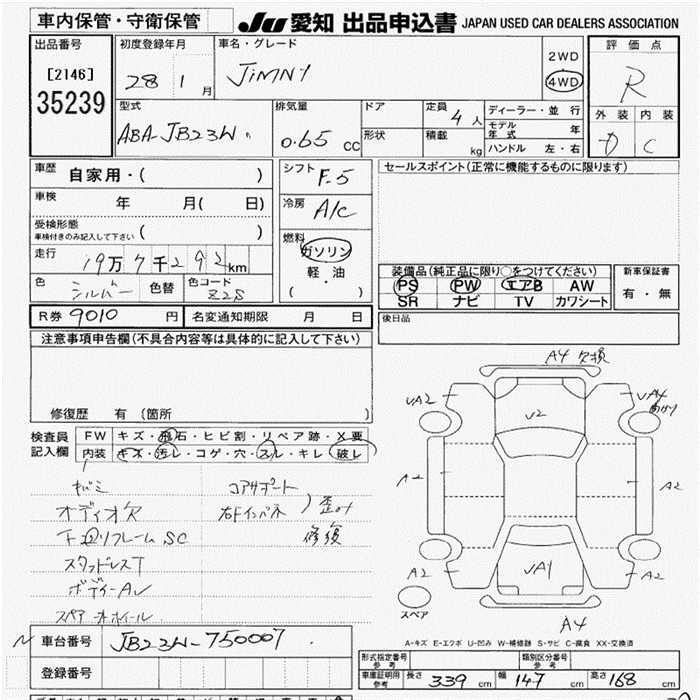 車内保管・守衛保管 JU 愛知 出品申込書 JAPAN USED CAR DEALERS ASSOCIATION
出品番号 初度登録年月 車名・グレード 評価点
[2146] 28 1 月 JIMNY 2WD 4WD R
35239
型式 排気量 ドア 定員 4 人 ディーラー・並行 外装 内装
ABA-JB23W 0.65 CC 形状 積載 kg モデル年式 年 D C
ハンドル 左・右
車歴 自家用・( ) シフト F.5 セールスポイント(正常に機能するものに限ります)
車検 年 月( 日) 冷房 A/C
受検形態 ( )
車検付きのみ記入して下さい
走行 19万7千292km 燃料 ガソリン
軽・油
( )
色 シルバー 色替 色コード Z2S
装備品(純正品に限り○をつけてください) 新車保証書
PS PW エアB AW 有・無
SR ナビ TV カワシート
R券 9010 円 名変通知期限 月 日 後日品
注意事項申告欄(不具合内容等は具体的に記入して下さい)
修復歴 有(箇所 )
検査員記入欄 FW キズ・飛石・ヒビ割・リペア跡・X要
内装 キズ・汚レ・コゲ・穴・スレ・キレ・破レ
A4 欠損
UA2 UA4
V2
A2 A2
キバミ コアサポート
オディオ欠 右Fインパネ 歪み
下回リフレームSC 修復
スタッドレスT
ボディーAU
スペアホイール
A2 UA1 A2
スペア
A4
A-キズ E-エクボ U-凹み W-補修跡 S-サビ C-腐食 XX-交換済
車台番号 JB23W-750007
登録番号
形式指定番号 参考 類別区分番号 参考
車庫証明用 参考 長さ 339 cm 幅 147 cm 高さ 168 cm